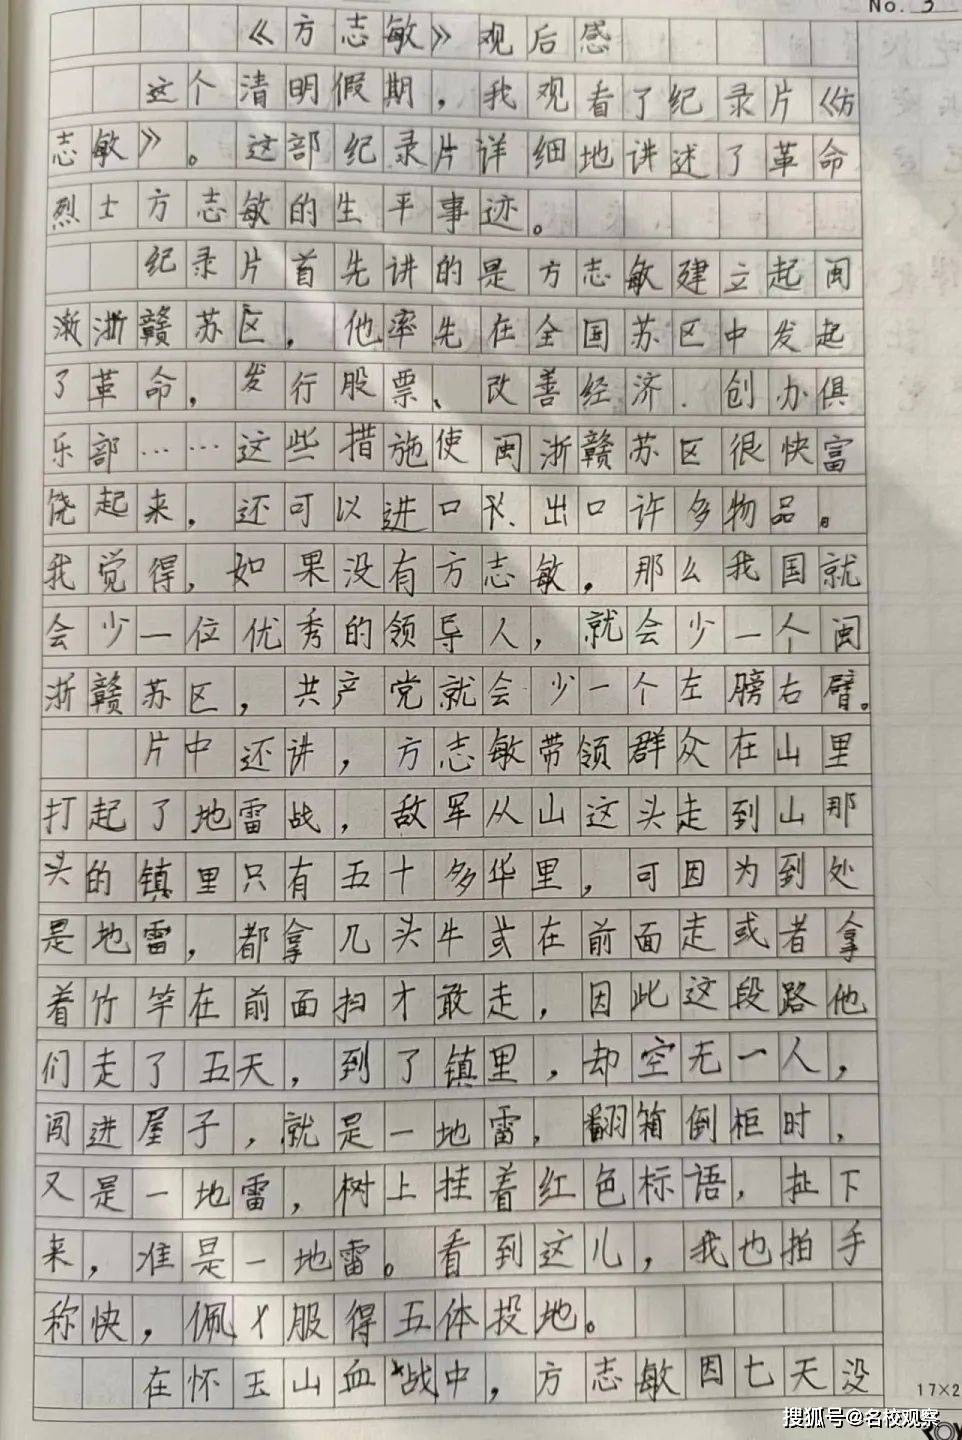 No. 3
《方志敏》观后感
这个清明假期，我观看了纪录片《方
志敏》。这部纪录片详细地讲述了革命
烈士方志敏的生平事迹。
纪录片首先讲的是方志敏建立起闽
浙赣苏区，他率先在全国苏区中发起
了革命，发行股票、改善经济、创办俱
乐部……这些措施使闽浙赣苏区很快富
饶起来，还可以进口、出口许多物品。
我觉得，如果没有方志敏，那么我国就
会少一位优秀的领导人，就会少一个闽
浙赣苏区，共产党就会少一个左膀右臂。
片中还讲，方志敏带领群众在山里
打起了地雷战，敌军从山这头走到山那
头的镇里只有五十多华里，可因为到处
是地雷，都拿几头牛或在前面走或者拿
着竹竿在前面扫才敢走，因此这段路他
们走了五天，到了镇里，却空无一人，
闯进屋子，就是一地雷，翻箱倒柜时，
又是一地雷，树上挂着红色标语，扯下
来，准是一地雷。看到这儿，我也拍手
称快，佩服得五体投地。
在怀玉山血战中，方志敏因七天没
17×2
搜狐号@名校观察